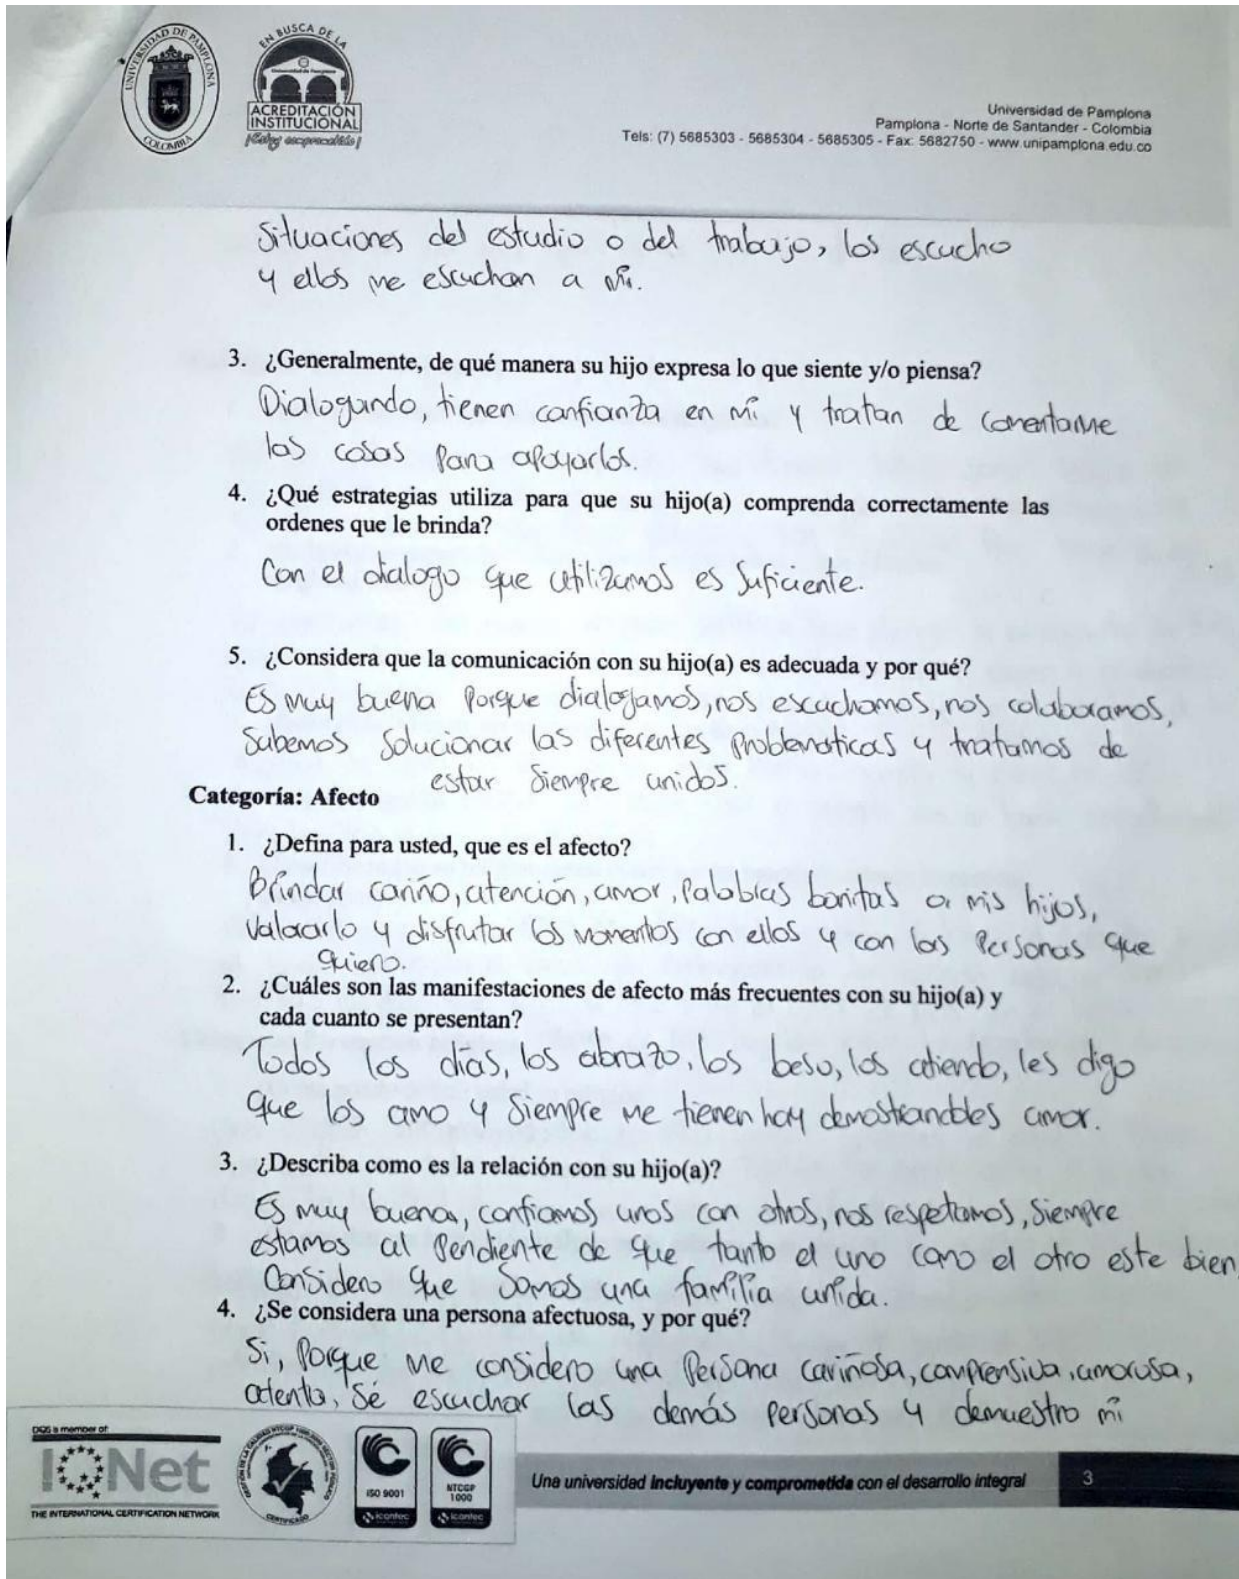 UNIVERSIDAD DE PAMPLONA
COLOMBIA
EN BUSCA DE LA
ACREDITACIÓN
INSTITUCIONAL
Universidad de Pamplona
Pamplona - Norte de Santander - Colombia
Tels: (7) 5685303 - 5685304 - 5685305 - Fax: 5682750 - www.unipamplona.edu.co
Situaciones del estudio o del trabajo, los escucho
y ellos me escuchan a mi.
3. ¿Generalmente, de qué manera su hijo expresa lo que siente y/o piensa?
Dialogando, tienen confianza en mi y tratan de comentarme
las cosas para apoyarlos.
4. ¿Qué estrategias utiliza para que su hijo(a) comprenda correctamente las
ordenes que le brinda?
Con el dialogo que utilizamos es suficiente.
5. ¿Considera que la comunicación con su hijo(a) es adecuada y por qué?
Es muy buena porque dialogamos, nos escuchamos, nos colaboramos,
Sabemos solucionar las diferentes problematicas y tratamos de
estar siempre unidos.
Categoría: Afecto
1. ¿Defina para usted, que es el afecto?
Brindar cariño, atención, amor, palabras bonitas a mis hijos,
Valorarlo y disfrutar los momentos con ellos y con las personas que
quiero.
2. ¿Cuáles son las manifestaciones de afecto más frecuentes con su hijo(a) y
cada cuanto se presentan?
Todos los días, los abrazo, los beso, los atiendo, les digo
que los amo y siempre me tienen hay demostrandoles amor.
3. ¿Describa como es la relación con su hijo(a)?
Es muy buena, confiamos unos con otros, nos respetamos, siempre
estamos al pendiente de que tanto el uno como el otro este bien,
Considero que somos una familia unida.
4. ¿Se considera una persona afectuosa, y por qué?
Si, porque me considero una persona cariñosa, comprensiva, amorosa,
atenta, sé escuchar las demás personas y demuestro mi
DQS is member of:
IQNet
THE INTERNATIONAL CERTIFICATION NETWORK
CERTIFICADO
ISO 9001
icontec
NTCGP
1000
icontec
Una universidad incluyente y comprometida con el desarrollo integral
3